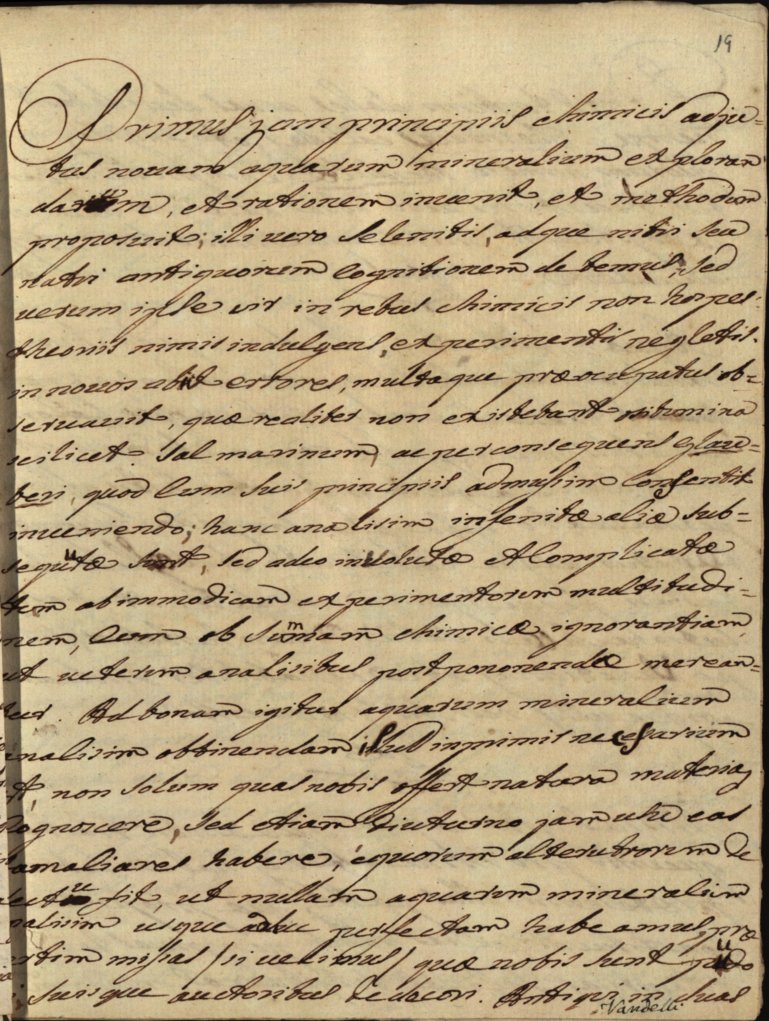 19
Primus jam principiis chimicis adju=
tus novam aquarum mineralium exploran
darum, et rationem invenit, et methodum
proposuit; illi vero Selenitis, adque nitri seu
natri antiquorum Cognitionem debemus, Sed
verum ipse vir in rebus chimicis non hospes:
theoriis nimis indulgens, experimentis negletis.
in novos abit errores, multaque præocupatus ob=
servavit, quæ realiter non existebant nitrumina
scilicet Sal marinum, ac per consequens glau=
beri, quod Cum Suis principiis admussim Consentit
inveniendo; hanc analisim infenitæ aliæ Sub=
sequutæ Sunt, Sed adeo involutæ et Complicatæ
tum ob immodicam experimentorum multitudi=
nem, Cum ob Summam chimicæ ignorantiam,
ut veterum analisibus postpononendæ merean=
tur. Ad bonam igitur aquarum mineralium
analisim obtinendam illud inprimis necessarium
est, non solum quas nobis offert natura materias
Cognoscere, Sed etiam Diuturno jam usu eas
familiares habere, equorum alterutrorum de
fectu fit, ut nullam aquarum mineralium
nalisim usque adhuc perfectam habeamus, præ
ertim missas /si velimus/ quæ nobis Sunt pudo
Suisque auctoribus dedecori. Antiqui in Suas
Vandelli